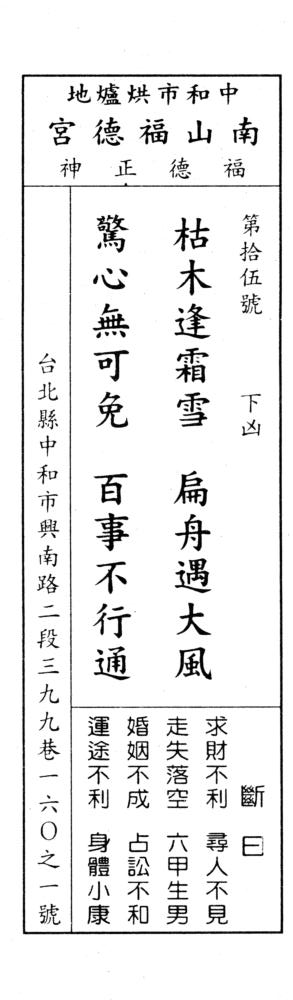 中和市烘爐地
南山福德宮
福德正神
第拾伍號 下凶
枯木逢霜雪 扁舟遇大風
驚心無可免 百事不行通
斷曰
求財不利 尋人不見
走失落空 六甲生男
婚姻不成 占訟不和
運途不利 身體小康
台北縣中和市興南路二段三九九巷一六〇之一號